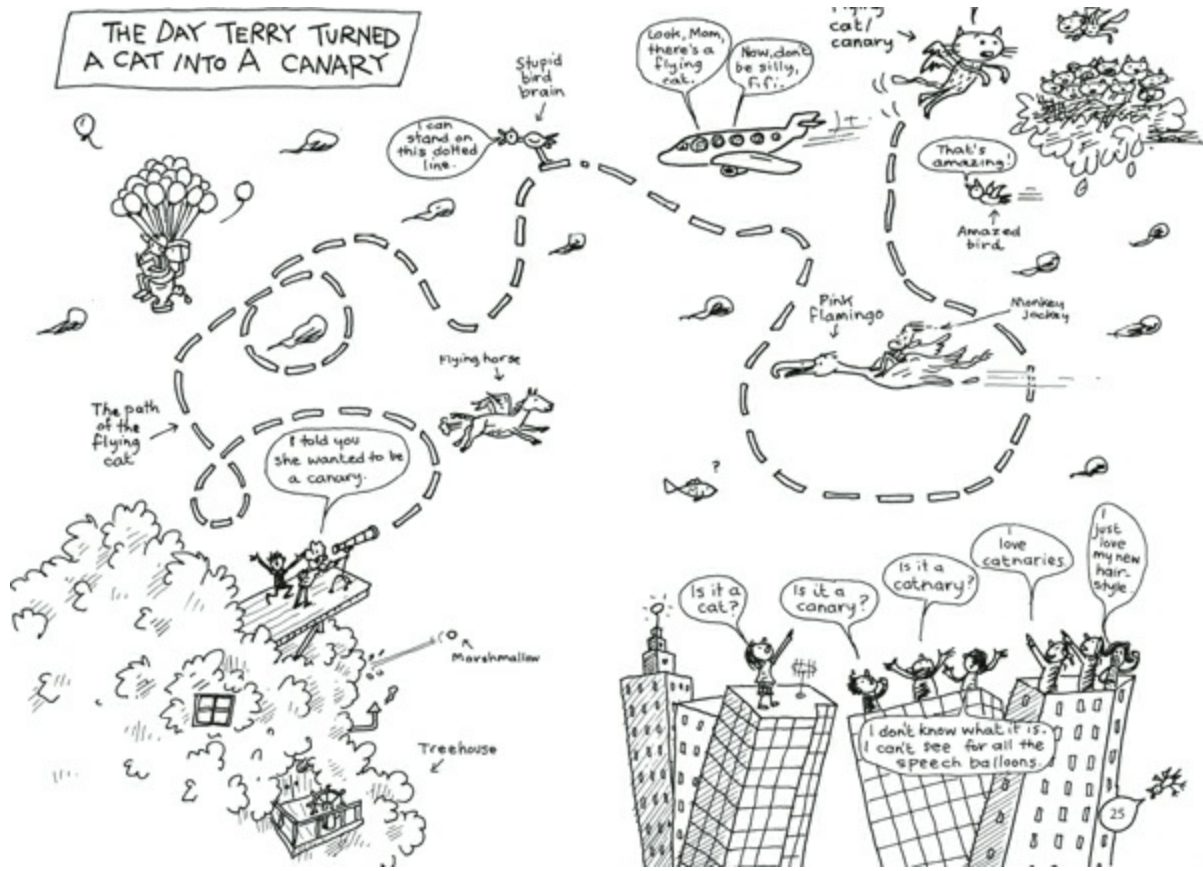 THE DAY TERRY TURNED
A CAT INTO A CANARY
Stupid
bird
brain
I can
stand on
this dotted
line.
Look, Mom,
there's a
flying
cat.
Now, don't
be silly,
Fifi.
cat/
canary
That's
amazing!
Amazed
bird
Pink
flamingo
Monkey
jockey
Flying horse
The path
of the
flying
cat
I told you
she wanted to be
a canary.
?
Marshmallow
Treehouse
Is it a
cat?
Is it a
canary?
Is it a
catnary?
I
love
catnaries.
I
just
love
my new
hair-
style.
I don't know what it is.
I can't see for all the
speech balloons.
25